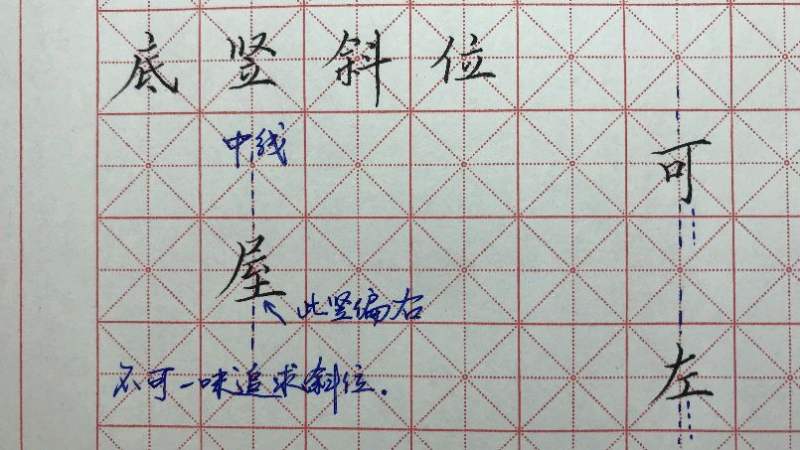 底竖斜位
中线
可
屋
此竖偏右
左
不可一味追求斜位.